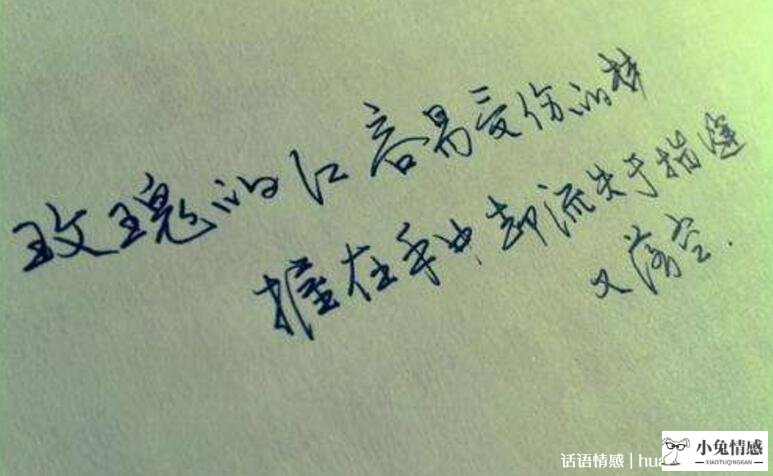 玫瑰的红 容易受伤的梦
握在手中却流失于指缝
又落空.
话语情感 | hua
小兔情感
XIAOTUQINGGAN